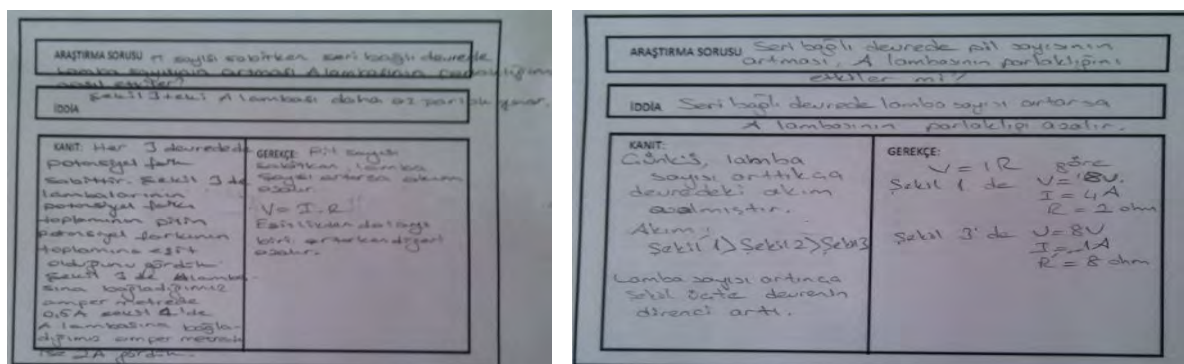 ARAŞTIRMA SORUSU sayısı sabitken seri bağlı devrede
lamba sayısının artması A lambasının parlaklığını
nasıl etkiler?
İDDİA Şekil 3teki A lambası daha az parlak
KANIT: Her 3 devrede de
potansiyel farkı
sabittir. Şekil 3 de
lambalarının
potansiyel farkı
toplamının pilin
potansiyel farkının
toplamına eşit
olduğunu gördük.
Şekil 3 de A lamba-
sına bağladığımız
amper metrede
0,5A şekil 1'de
A lambasına bağla-
dığımız amper metrede
ise 2A gördük.
GEREKÇE: Pil sayısı
sabitken lamba
sayısı artarsa akım
azalır.
V = I.R
Eşitlikden dolayı
biri artarken diğeri
azalır.
ARAŞTIRMA SORUSU Seri bağlı devrede pil sayısının
artması, A lambasının parlaklığını
etkiler mi?
İDDİA Seri bağlı devrede lamba sayısı artarsa
A lambasının parlaklığı azalır.
KANIT:
Çünkü, lamba
sayısı arttıkça
devredeki akım
azalmıştır.
Akım:
Şekil 1 > Şekil 2 > Şekil 3
Lamba sayısı artınca
şekil devrenin
direnci arttı.
GEREKÇE:
V = IR göre
Şekil 1 de V = 8V.
I = 4A
R = 2 ohm
Şekil 3' de V = 8V
I = 1A
R = 8 ohm